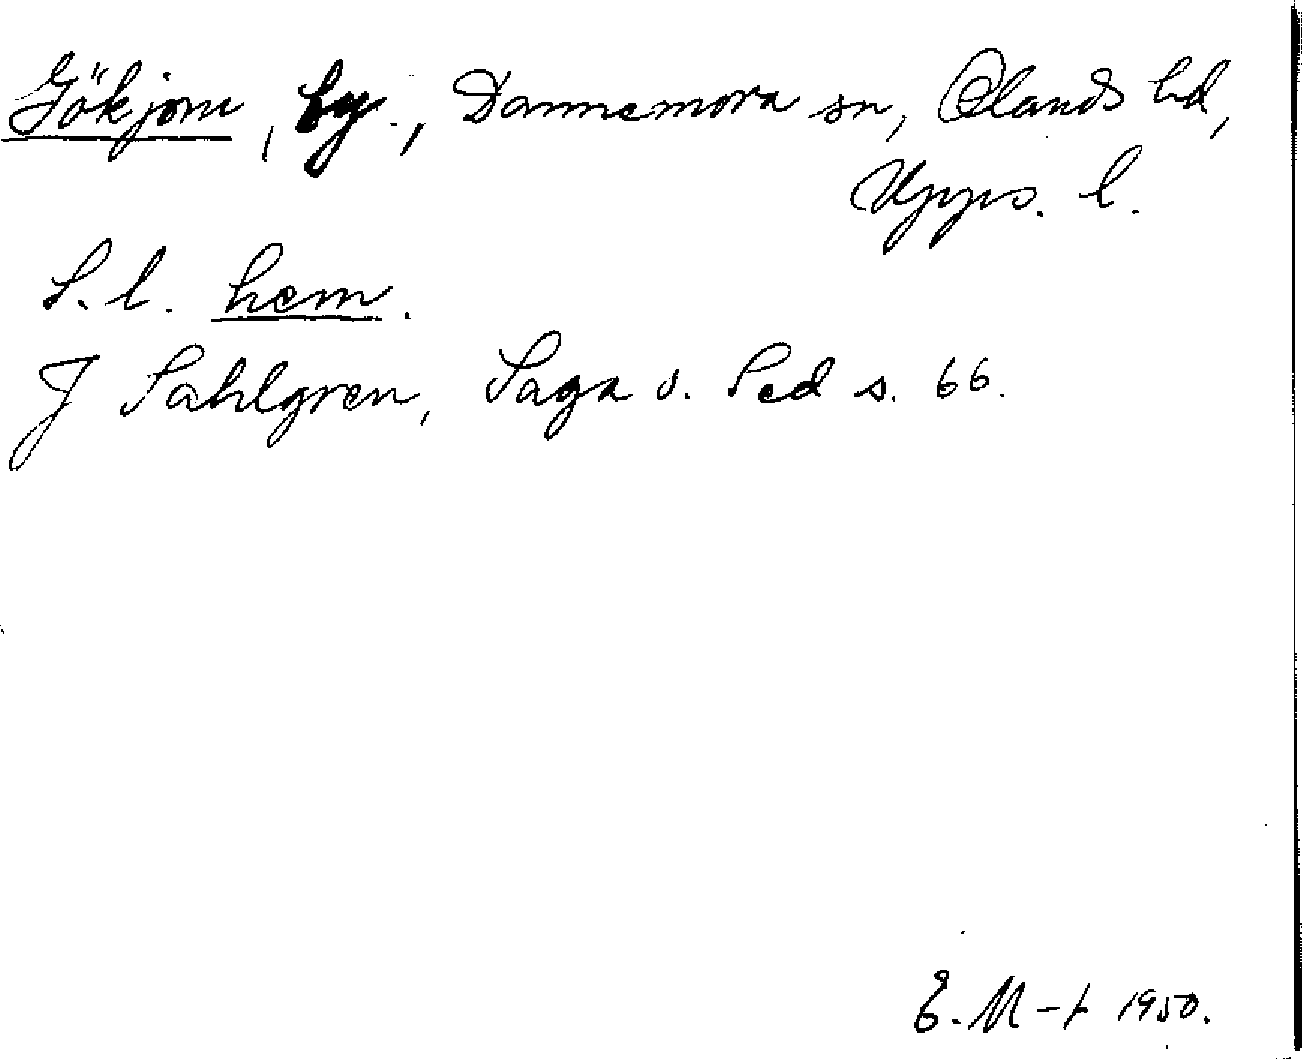 Gökjom, by., Dannemora sn, Olands hd,
Upps. l.
S. l. hem.
J Sahlgren, Saga o. Sed s. 66.
E. M-t 1950.